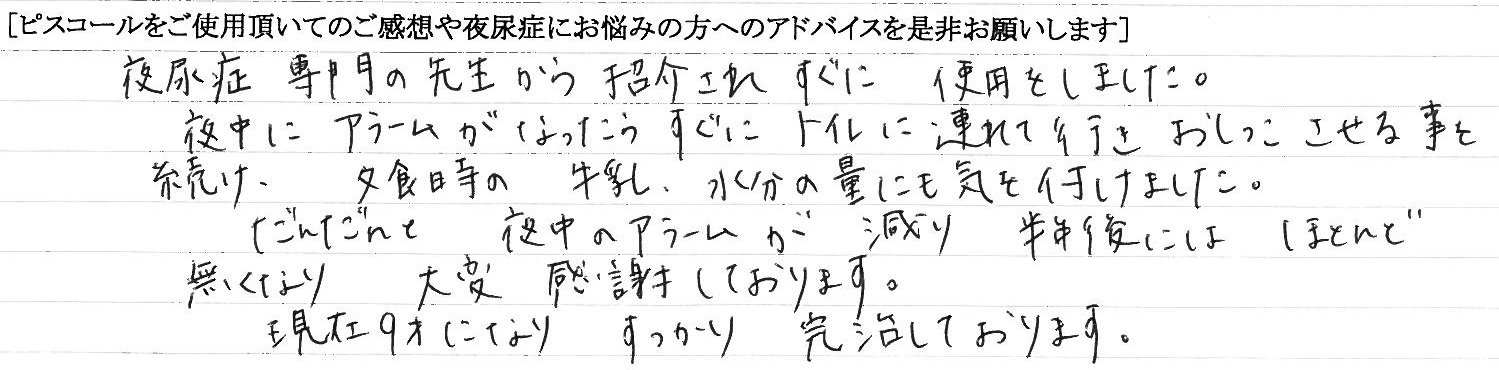 [ピスコールをご使用頂いてのご感想や夜尿症にお悩みの方へのアドバイスを是非お願いします]
夜尿症 専門の先生から 招介され すぐに 使用をしました。
夜中に アラームが なったらう すぐに トイレに 連れて行き おしっこ させる事を
続け、 夕食時の 牛乳、水分の量にも気を付けました。
だんだんと 夜中のアラームが 減り 半年後には ほとんど
無くなり 大変 感謝しております。
現在9才になり すっかり 完治しております。